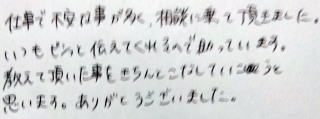 仕事で不安な事が多く、相談に乗って頂きました。
いつもビシッと伝えてくれるので助っています。
教えて頂いた事をきちんとこなしていこうと
思います。ありがとうございました。